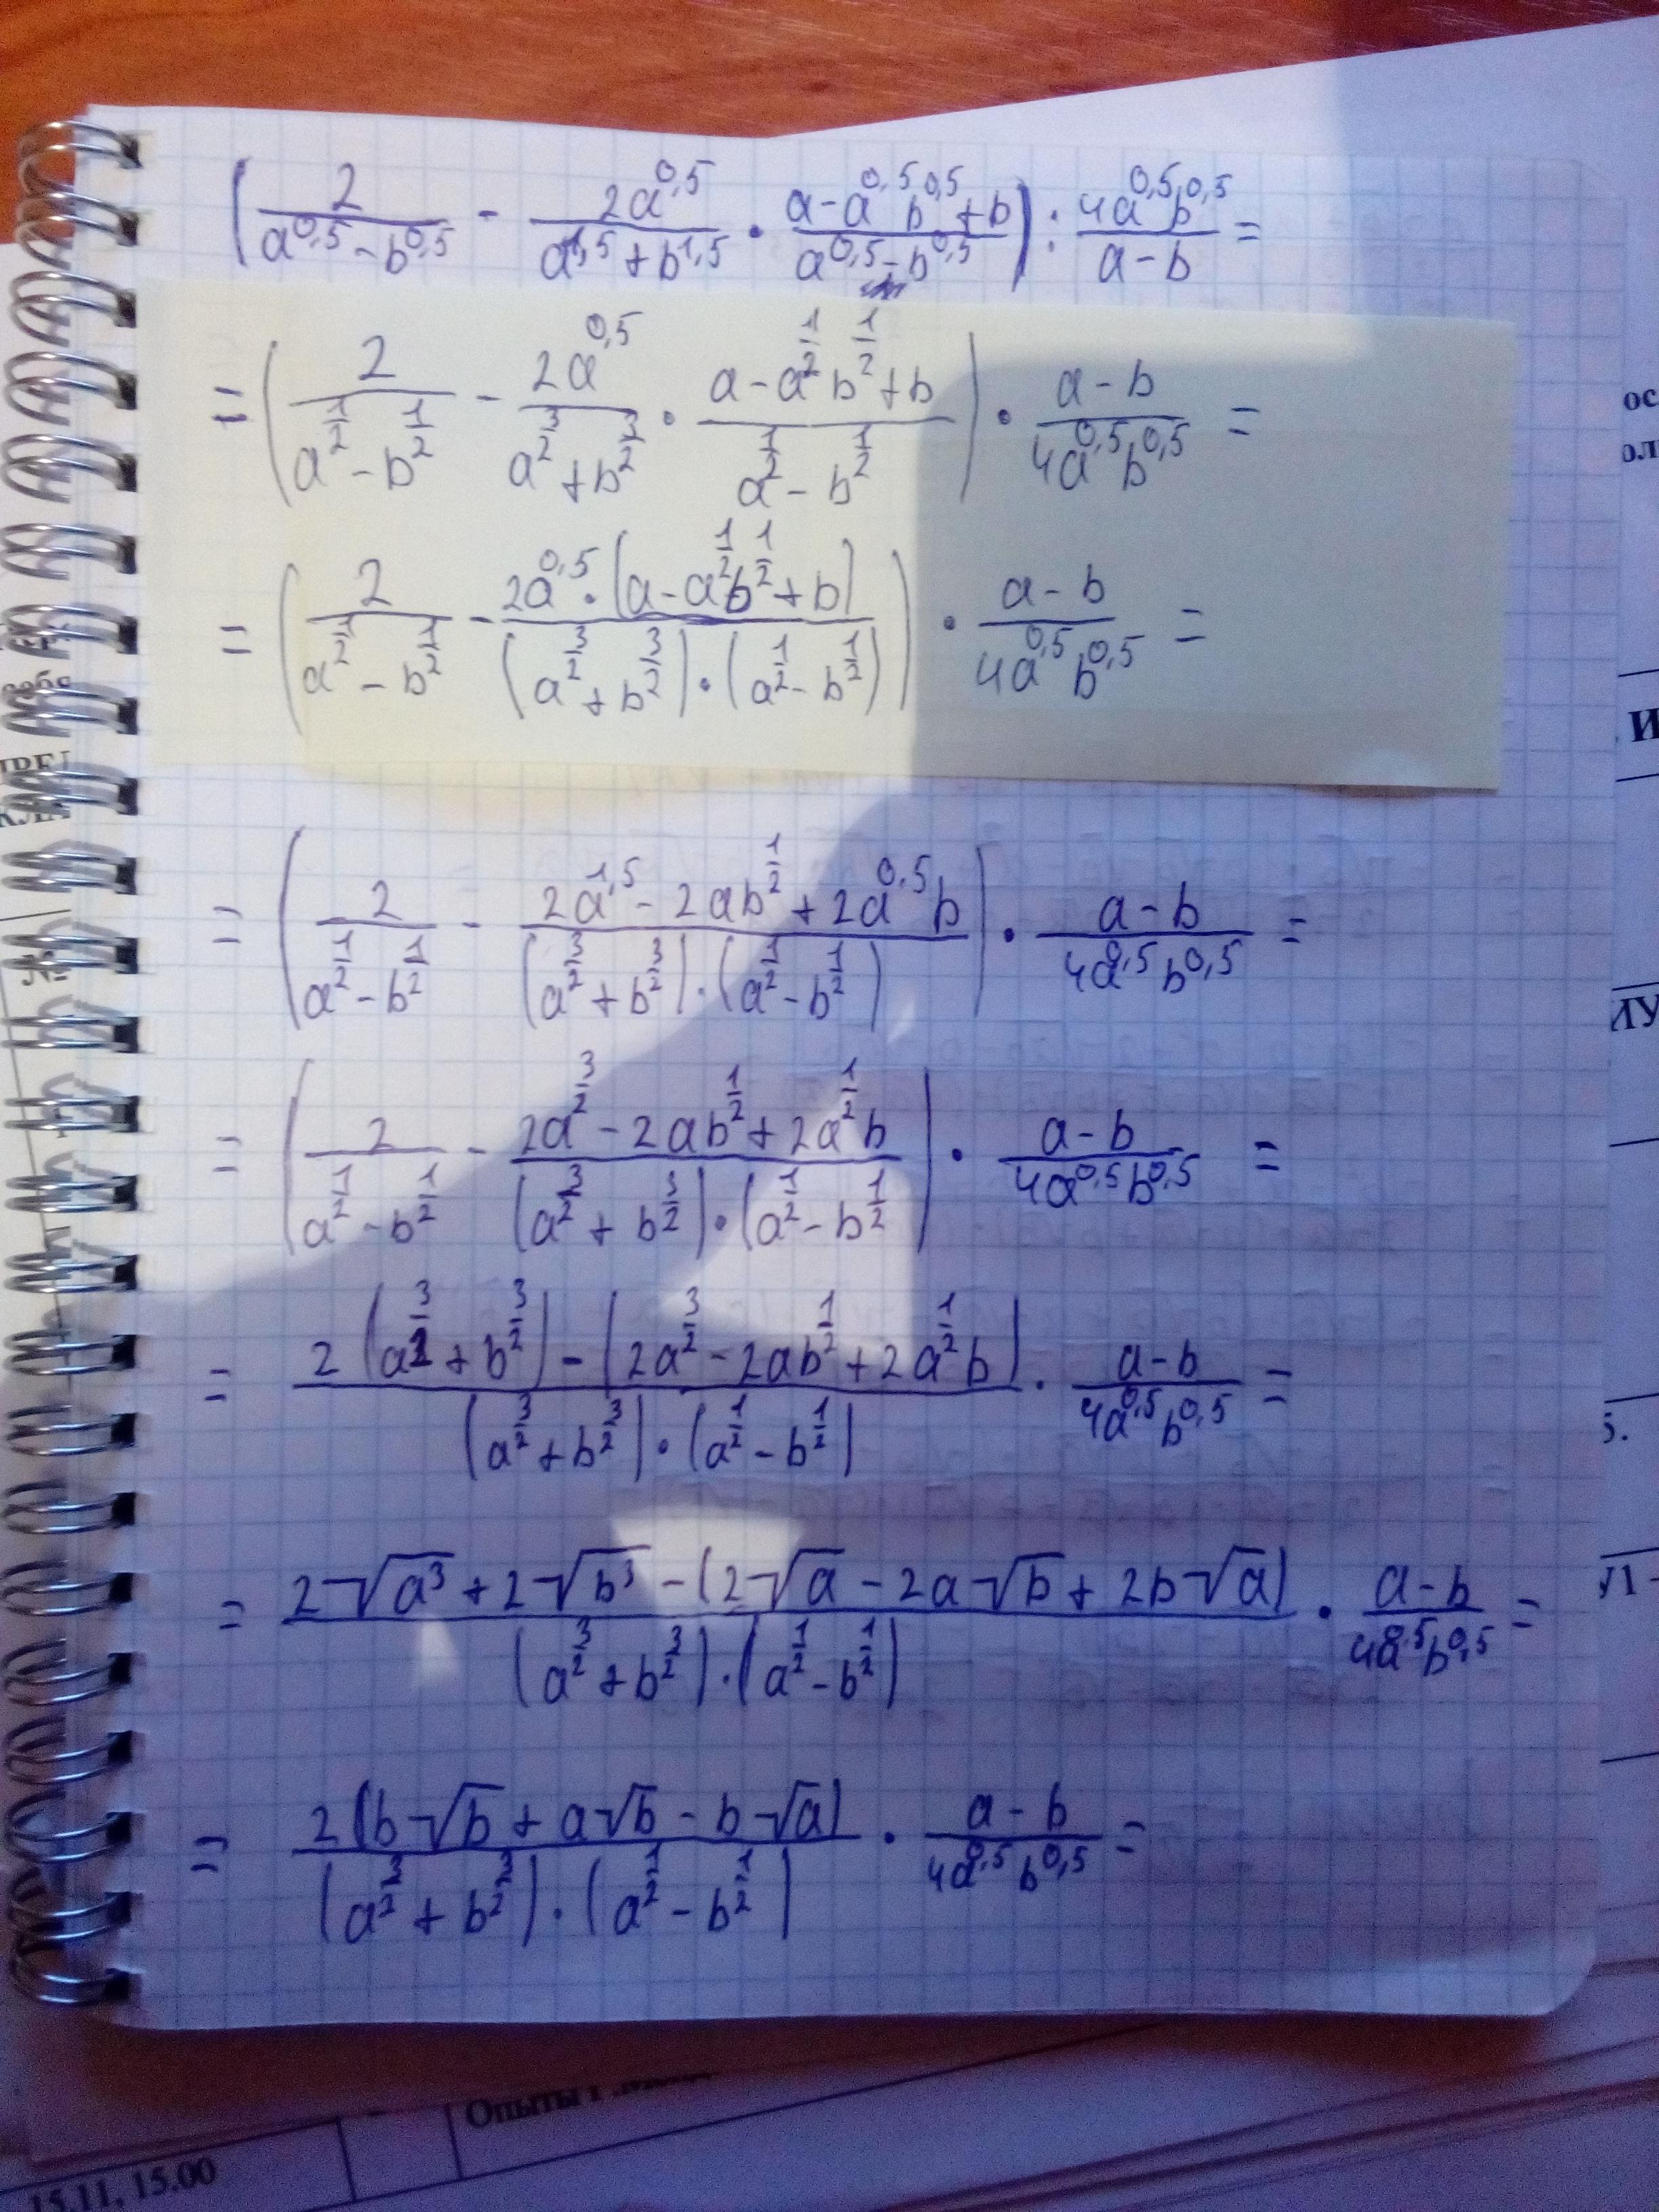 (2/(a^0,5 - b^0,5) - 2a^0,5/(a^1,5 + b^1,5) · (a - a^0,5 b^0,5 + b)/(a^0,5 - b^0,5)) : 4a^0,5 b^0,5/(a - b) =
= (2/(a^(1/2) - b^(1/2)) - 2a^0,5/(a^(3/2) + b^(3/2)) · (a - a^(1/2) b^(1/2) + b)/(a^(1/2) - b^(1/2))) · (a - b)/(4a^0,5 b^0,5) =
= (2/(a^(1/2) - b^(1/2)) - 2a^0,5 · (a - a^(1/2) b^(1/2) + b)/((a^(3/2) + b^(3/2)) · (a^(1/2) - b^(1/2)))) · (a - b)/(4a^0,5 b^0,5) =
= (2/(a^(1/2) - b^(1/2)) - (2a^1,5 - 2ab^(1/2) + 2a^0,5 b)/((a^(3/2) + b^(3/2)) · (a^(1/2) - b^(1/2)))) · (a - b)/(4a^0,5 b^0,5) =
= (2/(a^(1/2) - b^(1/2)) - (2a^(3/2) - 2ab^(1/2) + 2a^(1/2) b)/((a^(3/2) + b^(3/2)) · (a^(1/2) - b^(1/2)))) · (a - b)/(4a^0,5 b^0,5) =
= (2(a^(3/2) + b^(3/2)) - (2a^(3/2) - 2ab^(1/2) + 2a^(1/2) b))/((a^(3/2) + b^(3/2)) · (a^(1/2) - b^(1/2))) · (a - b)/(4a^0,5 b^0,5) =
= (2√a³ + 2√b³ - (2√a - 2a√b + 2b√a))/((a^(3/2) + b^(3/2)) · (a^(1/2) - b^(1/2))) · (a - b)/(4a^0,5 b^0,5) =
= 2(b√b + a√b - b√a)/((a^(3/2) + b^(3/2)) · (a^(1/2) - b^(1/2))) · (a - b)/(4a^0,5 b^0,5) =
Опыты
15.11, 15.00